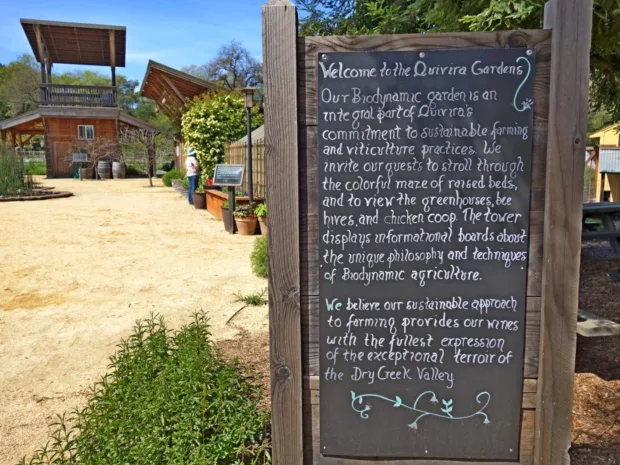 Welcome to the Quivira Gardens
Our Biodynamic garden is an
integral part of Quivira's
commitment to sustainable farming
and viticulture practices. We
invite our guests to stroll through
the colorful maze of raised beds,
and to view the greenhouses, bee
hives, and chicken coop. The tower
displays informational boards about
the unique philosophy and techniques
of Biodynamic agriculture.
We believe our sustainable approach
to farming provides our wines
with the fullest expression
of the exceptional terroir of
the Dry Creek Valley